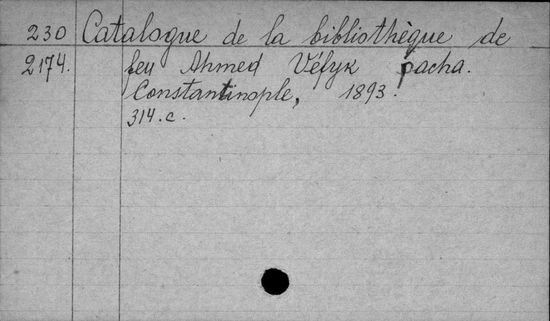 230 Catalogue de la bibliothèque de
2174. feu Ahmed Véfyk pacha.
Constantinople, 1893.
314.c.